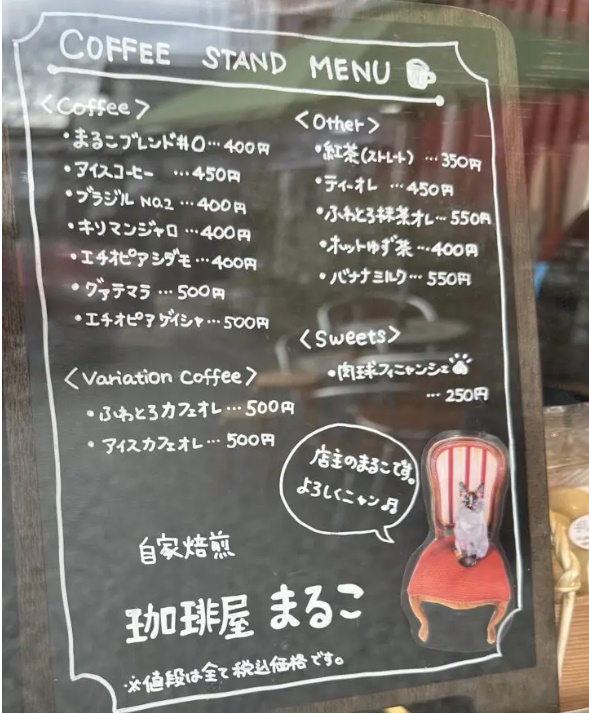 COFFEE STAND MENU
<Coffee>
・まるこブレンド#0…400円
・アイスコーヒー …450円
・ブラジル NO.2…400円
・キリマンジャロ…400円
・エチオピアシダモ…400円
・グァテマラ…500円
・エチオピアゲイシャ…500円
<Variation Coffee>
・ふわとろカフェオレ…500円
・アイスカフェオレ…500円
<Other>
・紅茶(ストレート)…350円
・ティーオレ …450円
・ふわとろ抹茶オレ…550円
・ホットゆず茶…400円
・バナナミルク…550円
<Sweets>
・肉球フィナンシェ
…250円
店主のまるこです。
よろしくニャン♬
自家焙煎
珈琲屋 まるこ
※値段は全て税込価格です。